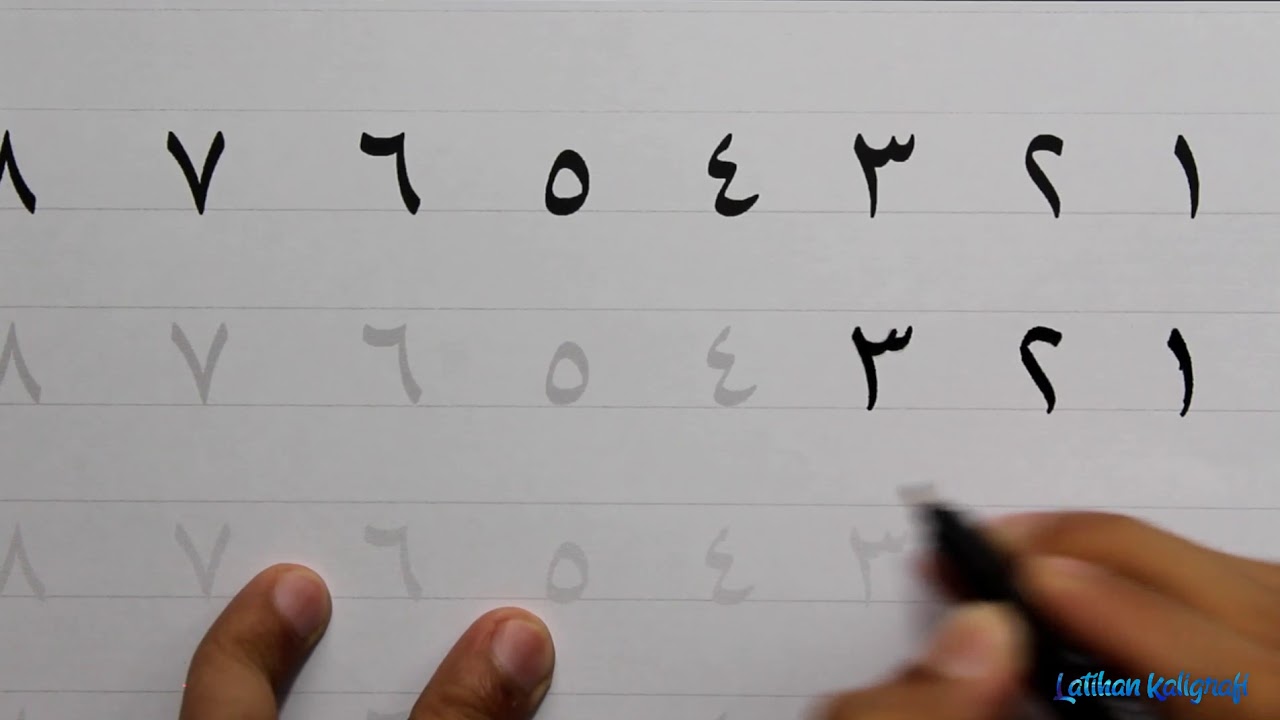 ١ ٢ ٣ ٤ ٥ ٦ ٧ ٨
١ ٢ ٣ ٤ ٥ ٦ ٧ ٨
٣ ٤ ٥ ٦ ٧ ٨
Latihan Kaligrafi